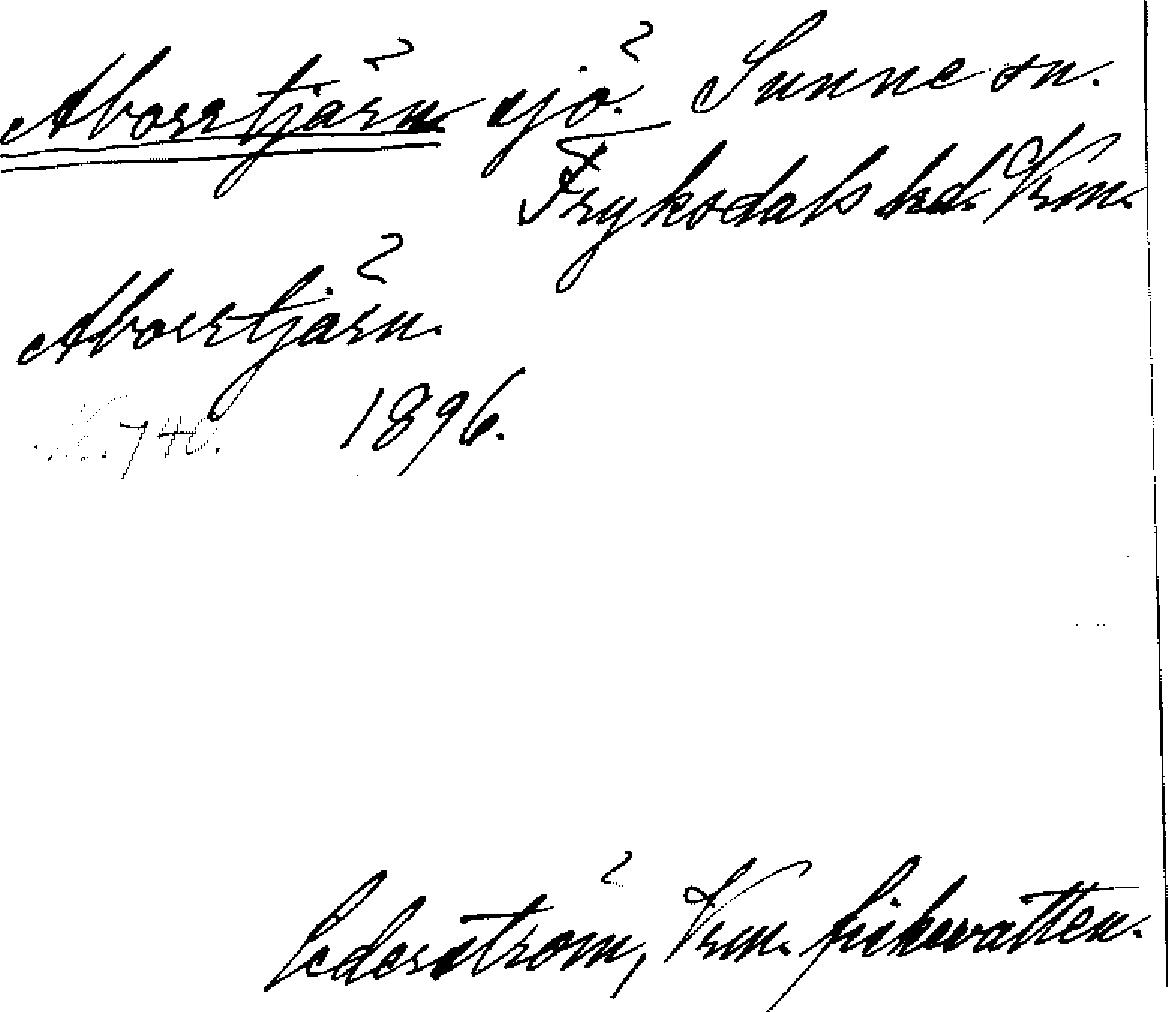 Aborrtjärn sjö. Sunne sn.
Fryksdals hd. Vrm.
Aborrtjärn.
No. 740. 1896.
Cederström, Vrm. fiskevatten.